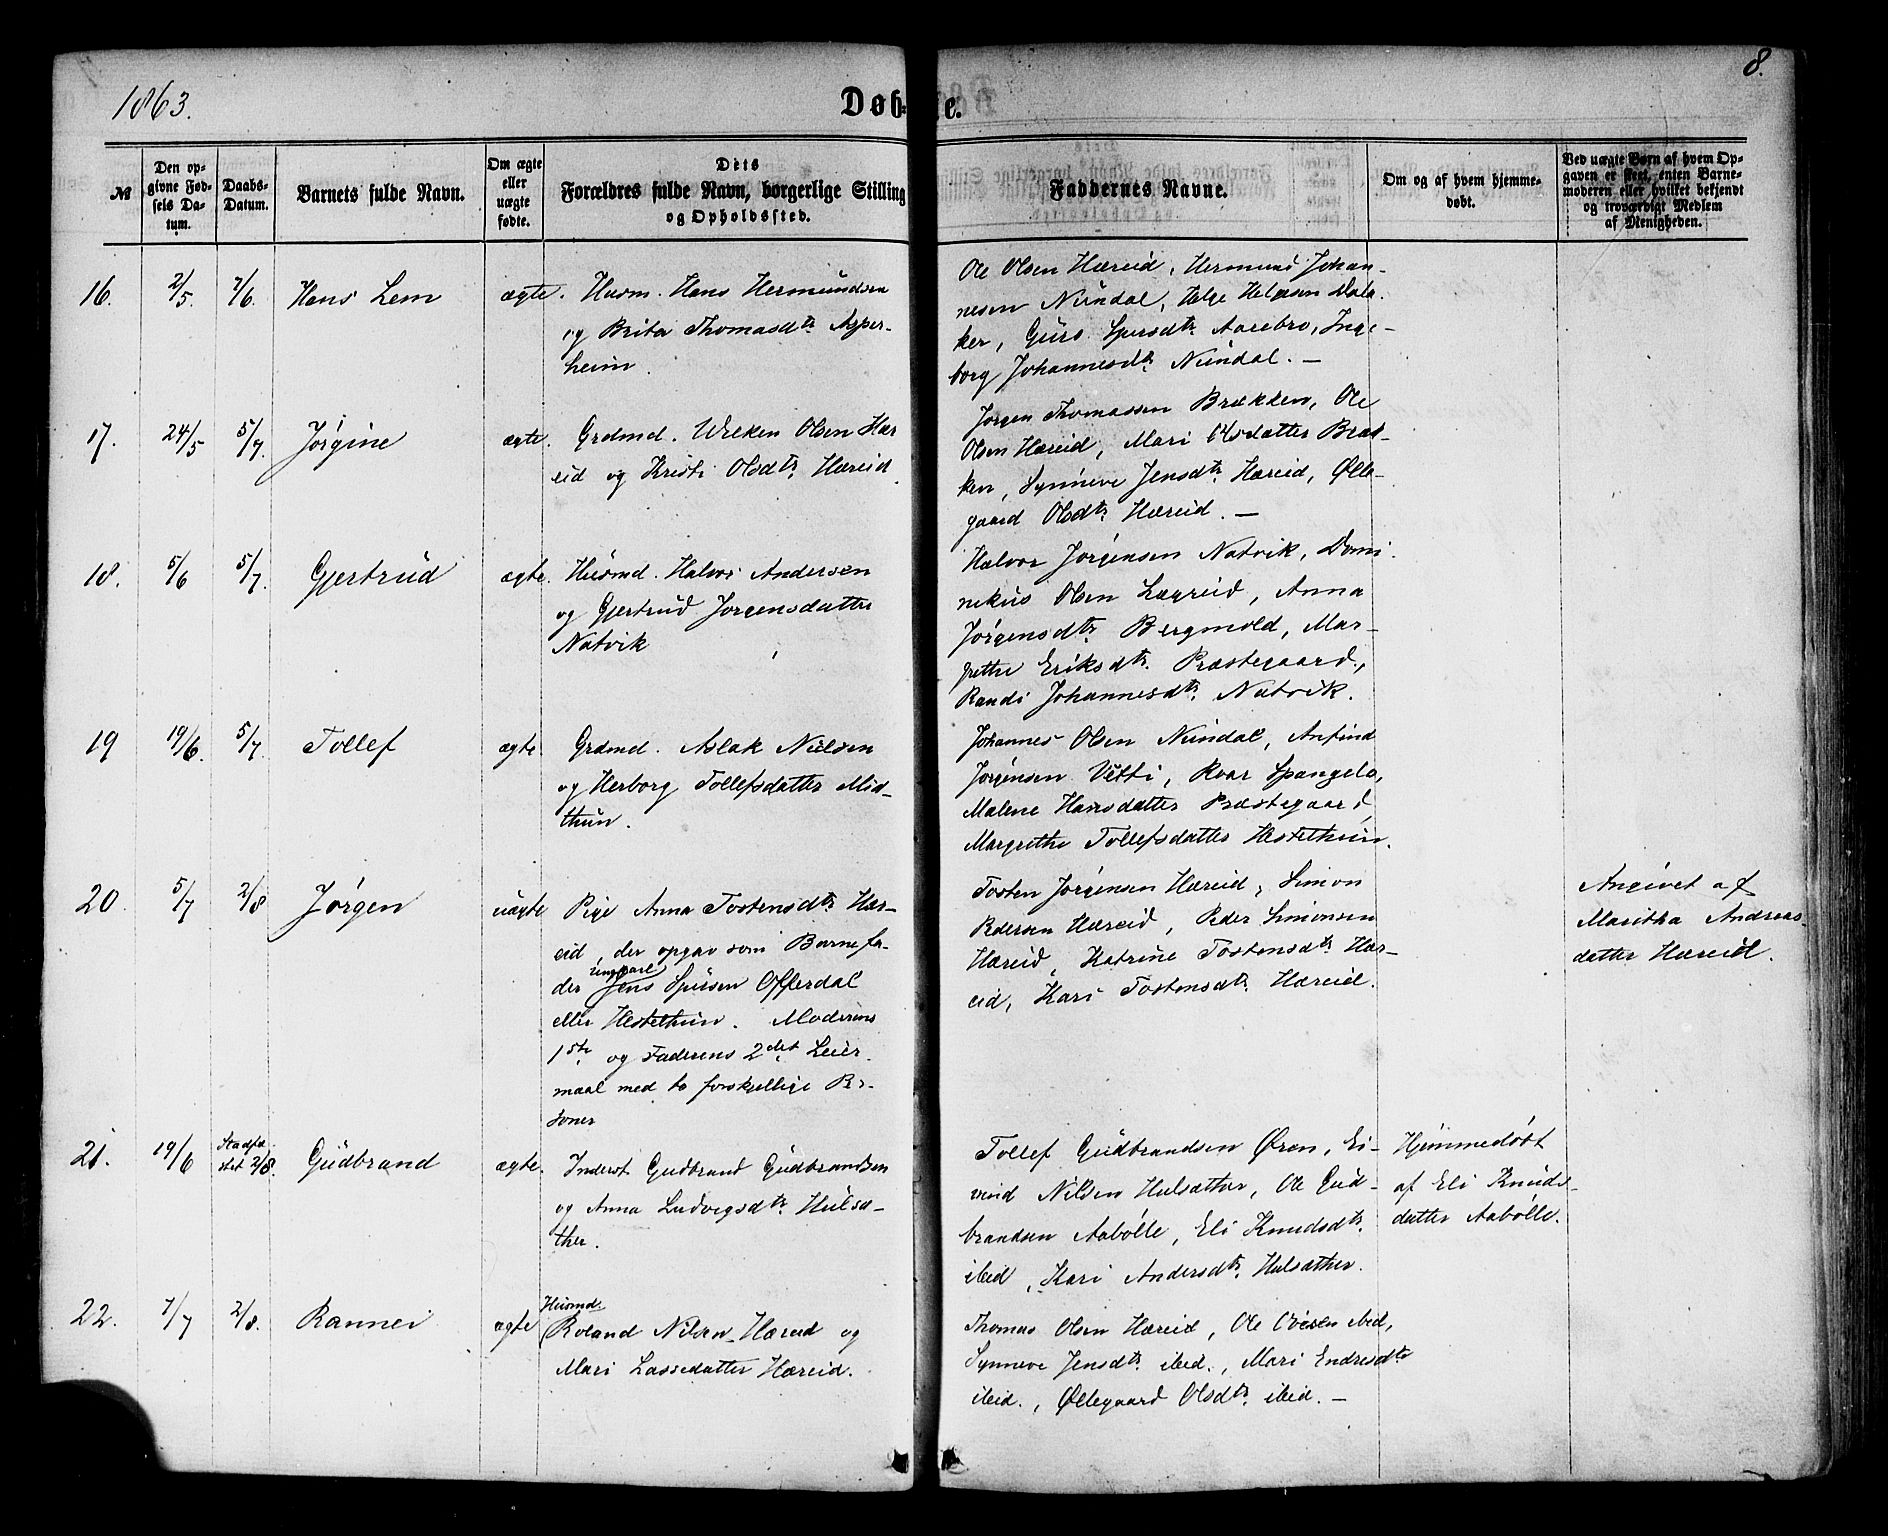 1863.
Døb-
te.
8.
№
Den op-
givne Fød-
sels Da-
tum.
Daabs-
Datum.
Barnets fulde Navn.
Om ægte
eller
uægte
fødte.
Dets
Forældres fulde Navn, borgerlige Stilling
og Opholdssted.
Faddernes Navne.
Om og af hvem hjemme-
døbt.
Ved uægte Børn af hvem Op-
gaven er skeet, enten Barne-
moderen eller hvilket bekjendt
og troværdigt Medlem
af Menigheden.
16. 2/5. 7/6. Hans Lem ægte. Husm. Hans Hermundsen
og Brita Thomasdtr Asper-
heim.
Ole Olsen Hæreid, Hermund Johan-
nesen Nundal, Helge Helgesen Dala-
ker, Guro Spersdtr Aarebro, Inge-
borg Johannesdtr Nundal. —
17. 24/5 5/7. Jørgine ægte. Grdmd. Wilken Olsen Hær
eid og Kristi Olsdtr Hæreid
Jørgen Thomassen Brækken, Ole
Olsen Hæreid, Mari Olsdatter Bræk-
ken, Synneve Jensdtr Hæreid, Ølle-
gaard Olsdtr Hæreid. —
18. 5/6 5/7. Gjertrud ægte. Husmd. Halvor Andersen
og Gjertrud Jørgensdatter
Natvik
Halvor Jørgensen Natvik, Domi-
nikus Olsen Lægreid, Anna
Jørgensdtr Bergmold, Mar-
grethe Eriksdtr. Præstegaard,
Randi Johannesdtr Natvik.
19 19/6. 5/7. Tollef ægte. Grdmd. Aslak Nielsen
og Herborg Tollefsdatter Mid-
thun.
Johannes Olsen Nundal, Anfind
Jørgensen Vetti, Roar Spangelo,
Malene Hansdatter Præstegaard,
Margrethe Tollefsdatter Hestethun.
20. 5/7 2/8 Jørgen uægte Pige Anna Tostensdtr Hær-
eid, der opgav som Barnefa-
der ungkarl Jens Spersen Offerdal
eller Hestethun. Moderens
1ste og Faderens 2det Leier-
maal med to forskjellige Per-
soner
Tosten Jørgensen Hæreid, Simon
Pedersen Hæreid, Peder Simonsen
Hæreid, Katrine Tostensdtr Hær-
eid, Kari Tostensdtr. Hæreid.
Angivet af
Maritha Andreas-
datter Hæreid.
21. 19/6 Stadfæ-
stet 2/8. Gudbrand ægte. Inderst Gudbrand Gudbrandsen
og Anna Ludvigsdtr Hulsæ-
ther.
Tollef Gudbrandsen Øren, Ei-
vind Nilsen Hulsæther, Ole Gud-
brandsen Aabølle, Eli Knudsdtr.
ibid, Kari Andersdtr. Hulsæther.
Hjemmedøbt
af Eli Knuds-
datter Aabølle.
22. 7/7 2/8. Rannei ægte Husmd.
Roland Nilsen Hæreid og
Mari Lassedatter Hæreid.
Thomas Olsen Hæreid, Ole Olsen ibid,
Synneve Jensdtr ibid., Mari Endresdtr
ibid., Øllegaard Olsdtr. ibid. —